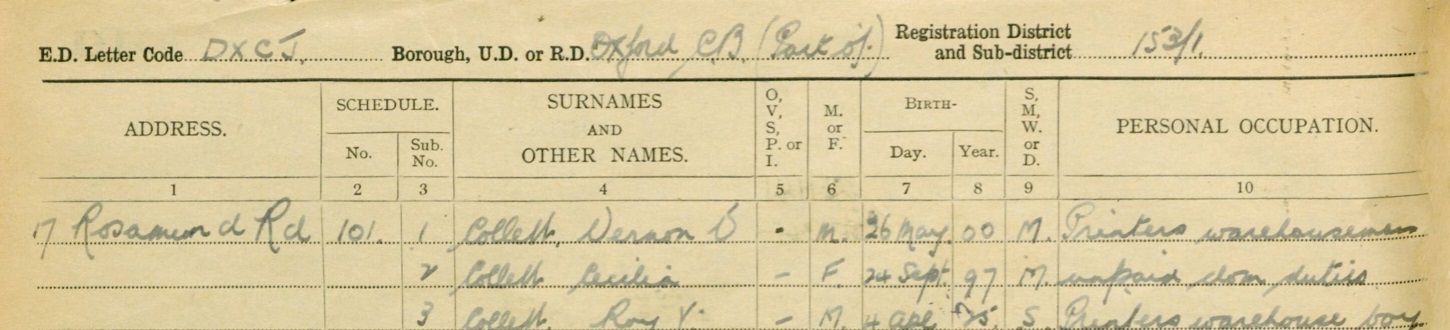 E.D. Letter Code DXCJ. Borough, U.D. or R.D. Oxford C.B. (Part of) Registration District and Sub-district 153/1.
ADDRESS. SCHEDULE. No. Sub. No. SURNAMES AND OTHER NAMES. O, V, S, P. or I. M. or F. BIRTH- Day. Year. S, M, W. or D. PERSONAL OCCUPATION.
1 2 3 4 5 6 7 8 9 10
17 Rosamund Rd 101. 1 Collett, Vernon - M. 26 May 00 M. Printers warehouseman
2 Collett Cecilia - F. 24 Sept. 97 M. unpaid dom duties
3 Collett, Roy V. - M. 4 Apl 25. S. Printers warehouse boy